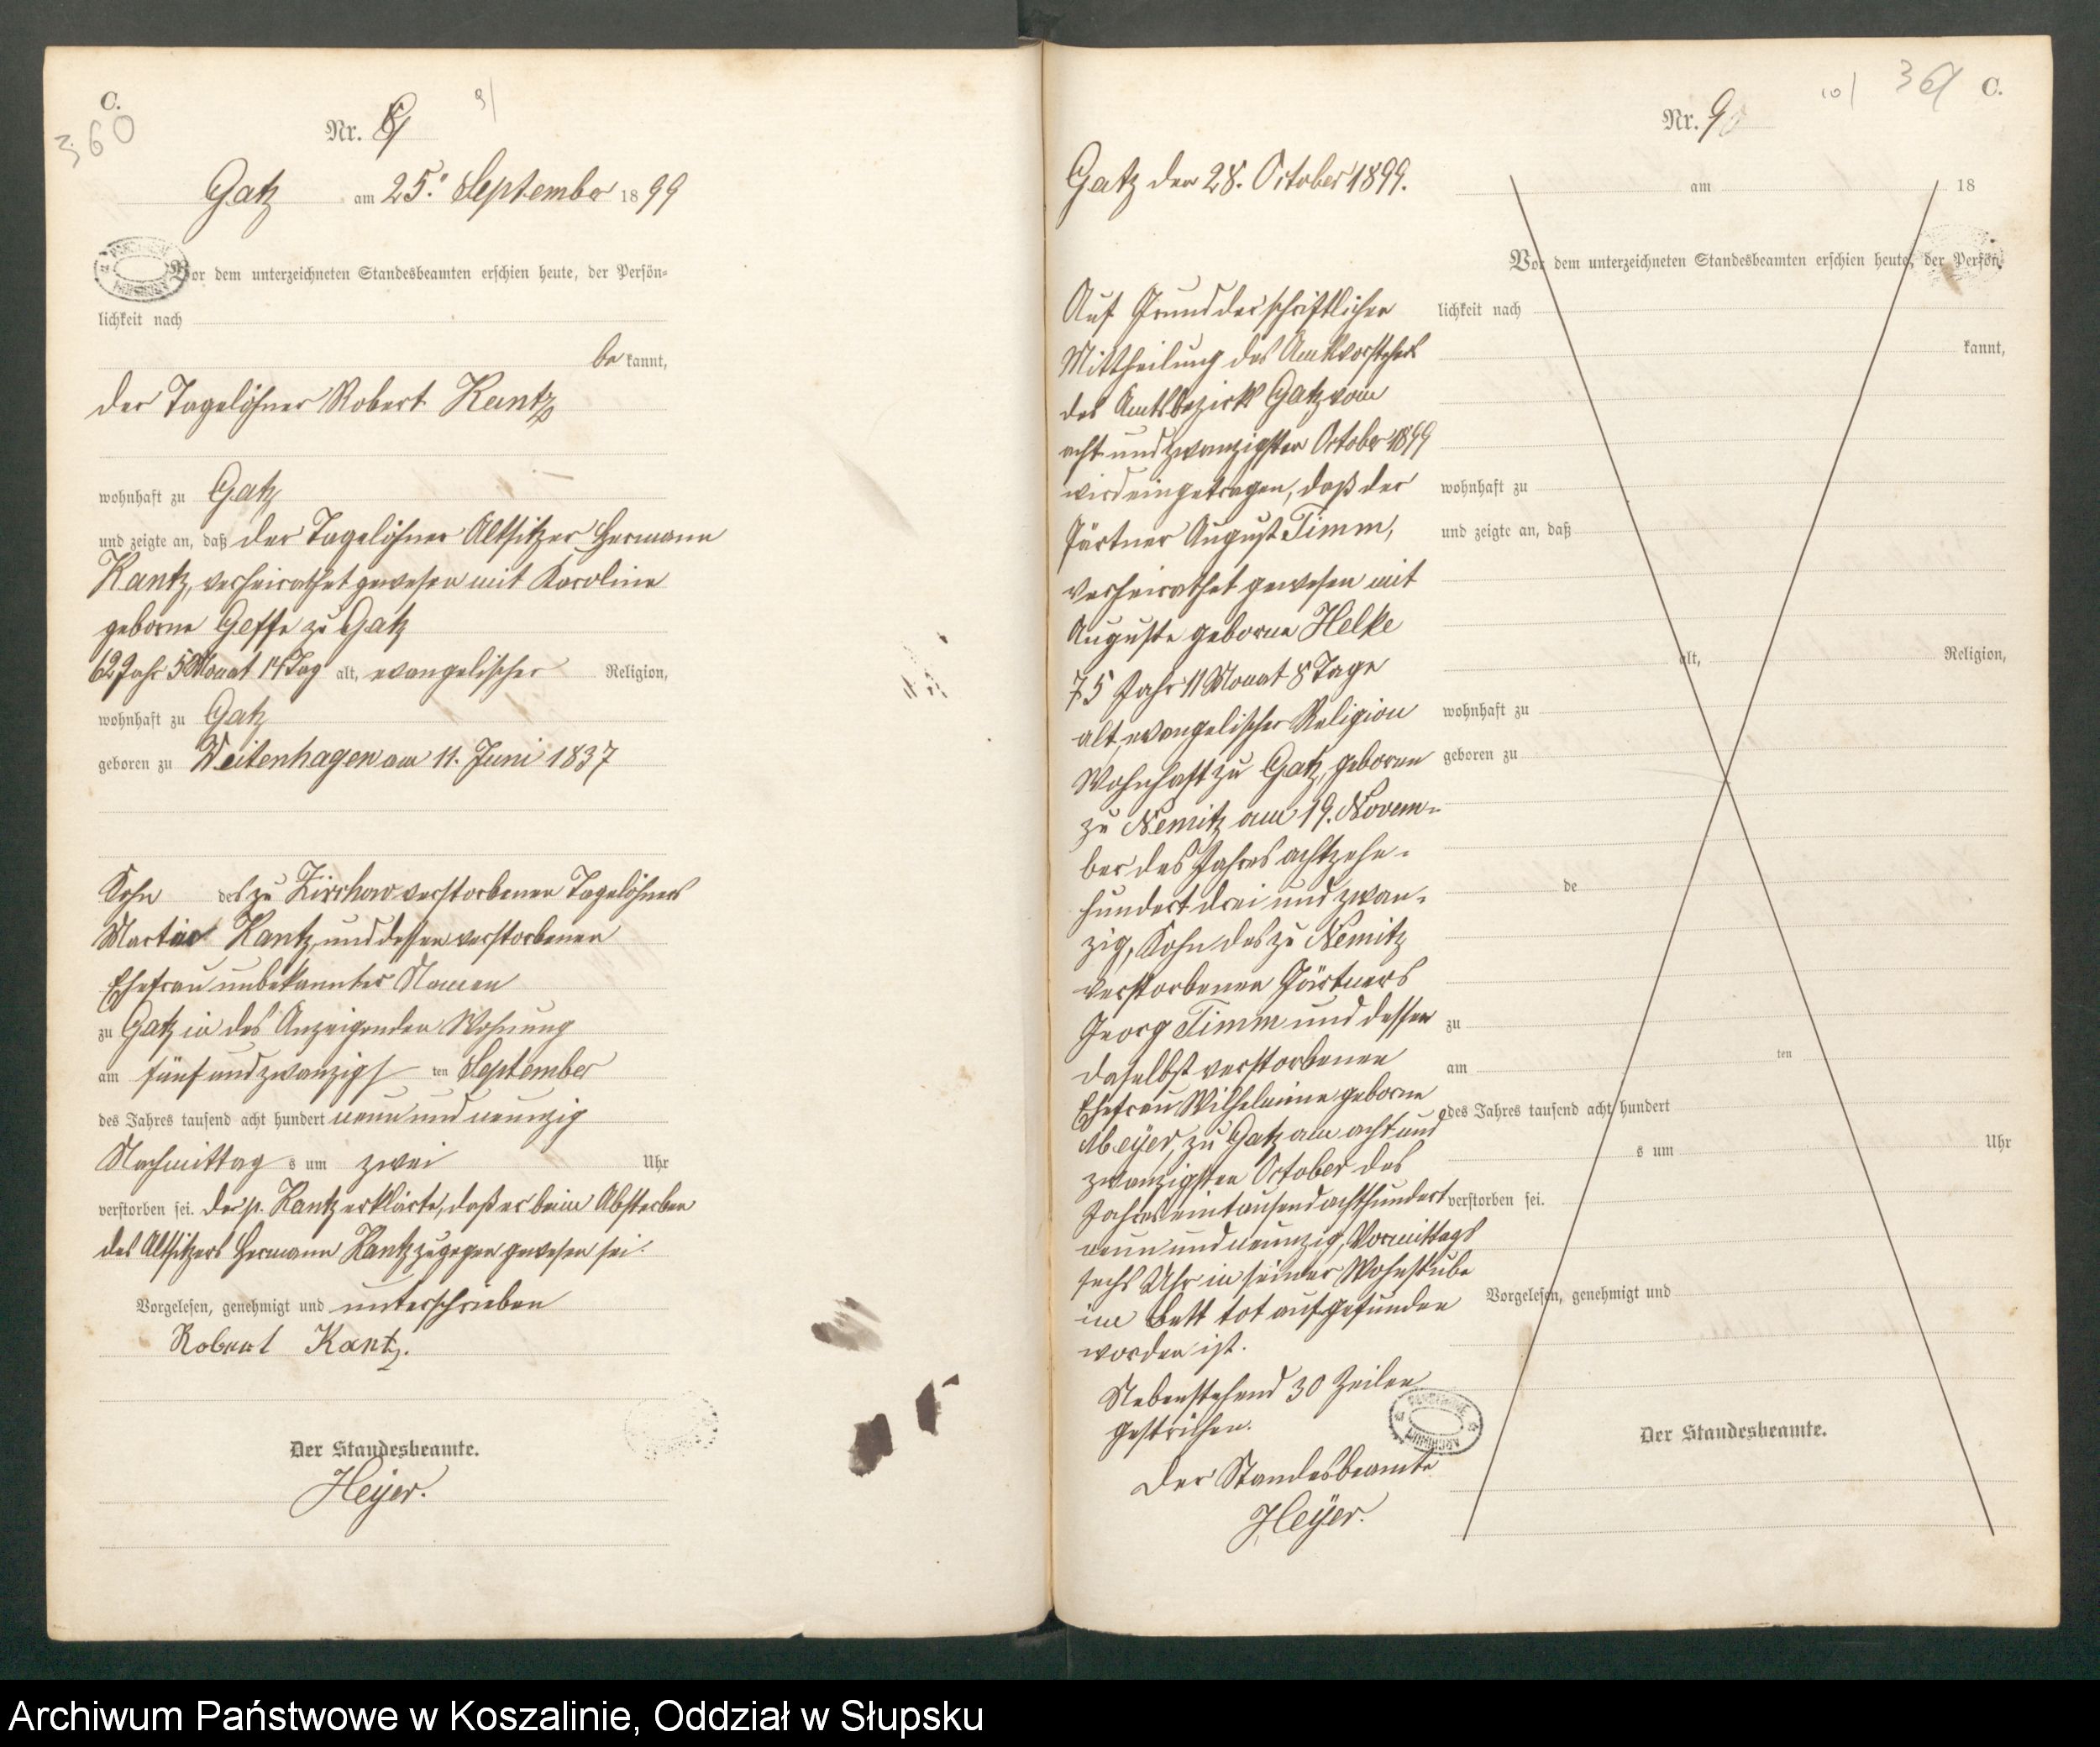 C.
360
9)
Nr. 9
Gatz am 25. September 1899
Vor dem unterzeichneten Standesbeamten erschien heute, der Persön-
lichkeit nach
be kannt,
der Tagelöhner Robert Kantz
wohnhaft zu Gatz
und zeigte an, daß der Tagelöhner Altsitzer Hermann
Kantz, verheirathet gewesen mit Karoline
geborne Geffe zu Gatz
62 Jahr 5 Monat 14 Tag alt, evangelischer Religion,
wohnhaft zu Gatz
geboren zu Weitenhagen am 11. Juni 1837
Sohn des zu Zirchow verstorbenen Tagelöhners
Martin Kantz, und dessen verstorbenen
Ehefrau unbekannter Namen
zu Gatz in des Anzeigenden Wohnung
am fünf und zwanzigs ten September
des Jahres tausend acht hundert neun und neunzig
Nachmittag s um zwei Uhr
verstorben sei. Der p. Kantz erklärte, daß er beim Absterben
des Altsitzers Hermann Kantz zugegen gewesen sei.
Vorgelesen, genehmigt und unterschrieben
Robert Kantz.
Der Standesbeamte.
Heyer.
10) 361 C.
Nr. 9
Gatz den 28. October 1899.
am 18
Vor dem unterzeichneten Standesbeamten erschien heute, der Persön-
lichkeit nach
kannt,
wohnhaft zu
und zeigte an, daß
alt, Religion,
wohnhaft zu
geboren zu
de
zu
am ten
des Jahres tausend acht hundert
s um Uhr
verstorben sei.
Vorgelesen, genehmigt und
Der Standesbeamte.
Auf Grund der schriftlichen
Mittheilung des Amtsvorstehers
des Amtsbezirks Gatz vom
acht und zwanzigsten October 1899
wird eingetragen, daß der
Gärtner August Timm,
verheirathet gewesen mit
Auguste geborne Helke
75 Jahr 11 Monat 8 Tage
alt, evangelischer Religion
Wohnhaft zu Gatz, geboren
zu Nemitz am 19. Novem-
ber des Jahres achtzehn-
hundert drei und zwan-
zig, Sohn des zu Nemitz
verstorbenen Gärtners
Georg Timm und dessen
daselbst verstorbenen
Ehefrau Wilhelmine geborne
Meyer, zu Gatz am acht und
zwanzigsten October des
Jahres eintausend achthundert
neun und neunzig, Vormittags
sechs Uhr in seiner Wohnstube
im Bett tot aufgefunden
worden ist.
Nebenstehend 30 Zeilen
gestrichen.
Der Standesbeamte
Heyer.
Archiwum Państwowe w Koszalinie, Oddział w Słupsku